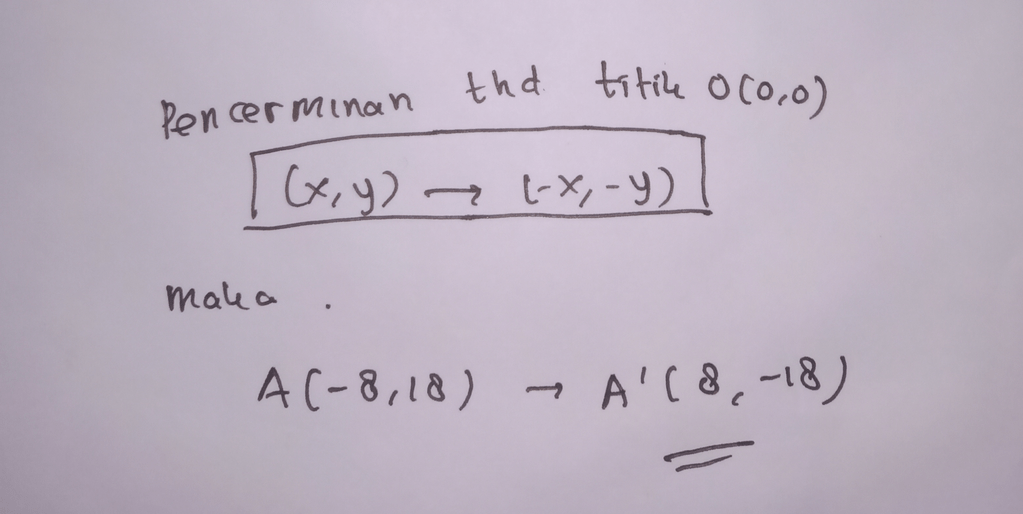 Pencerminan thd titik O(0,0)
(x,y) → (-x,-y)
maka .
A(-8,18) → A'(8,-18)